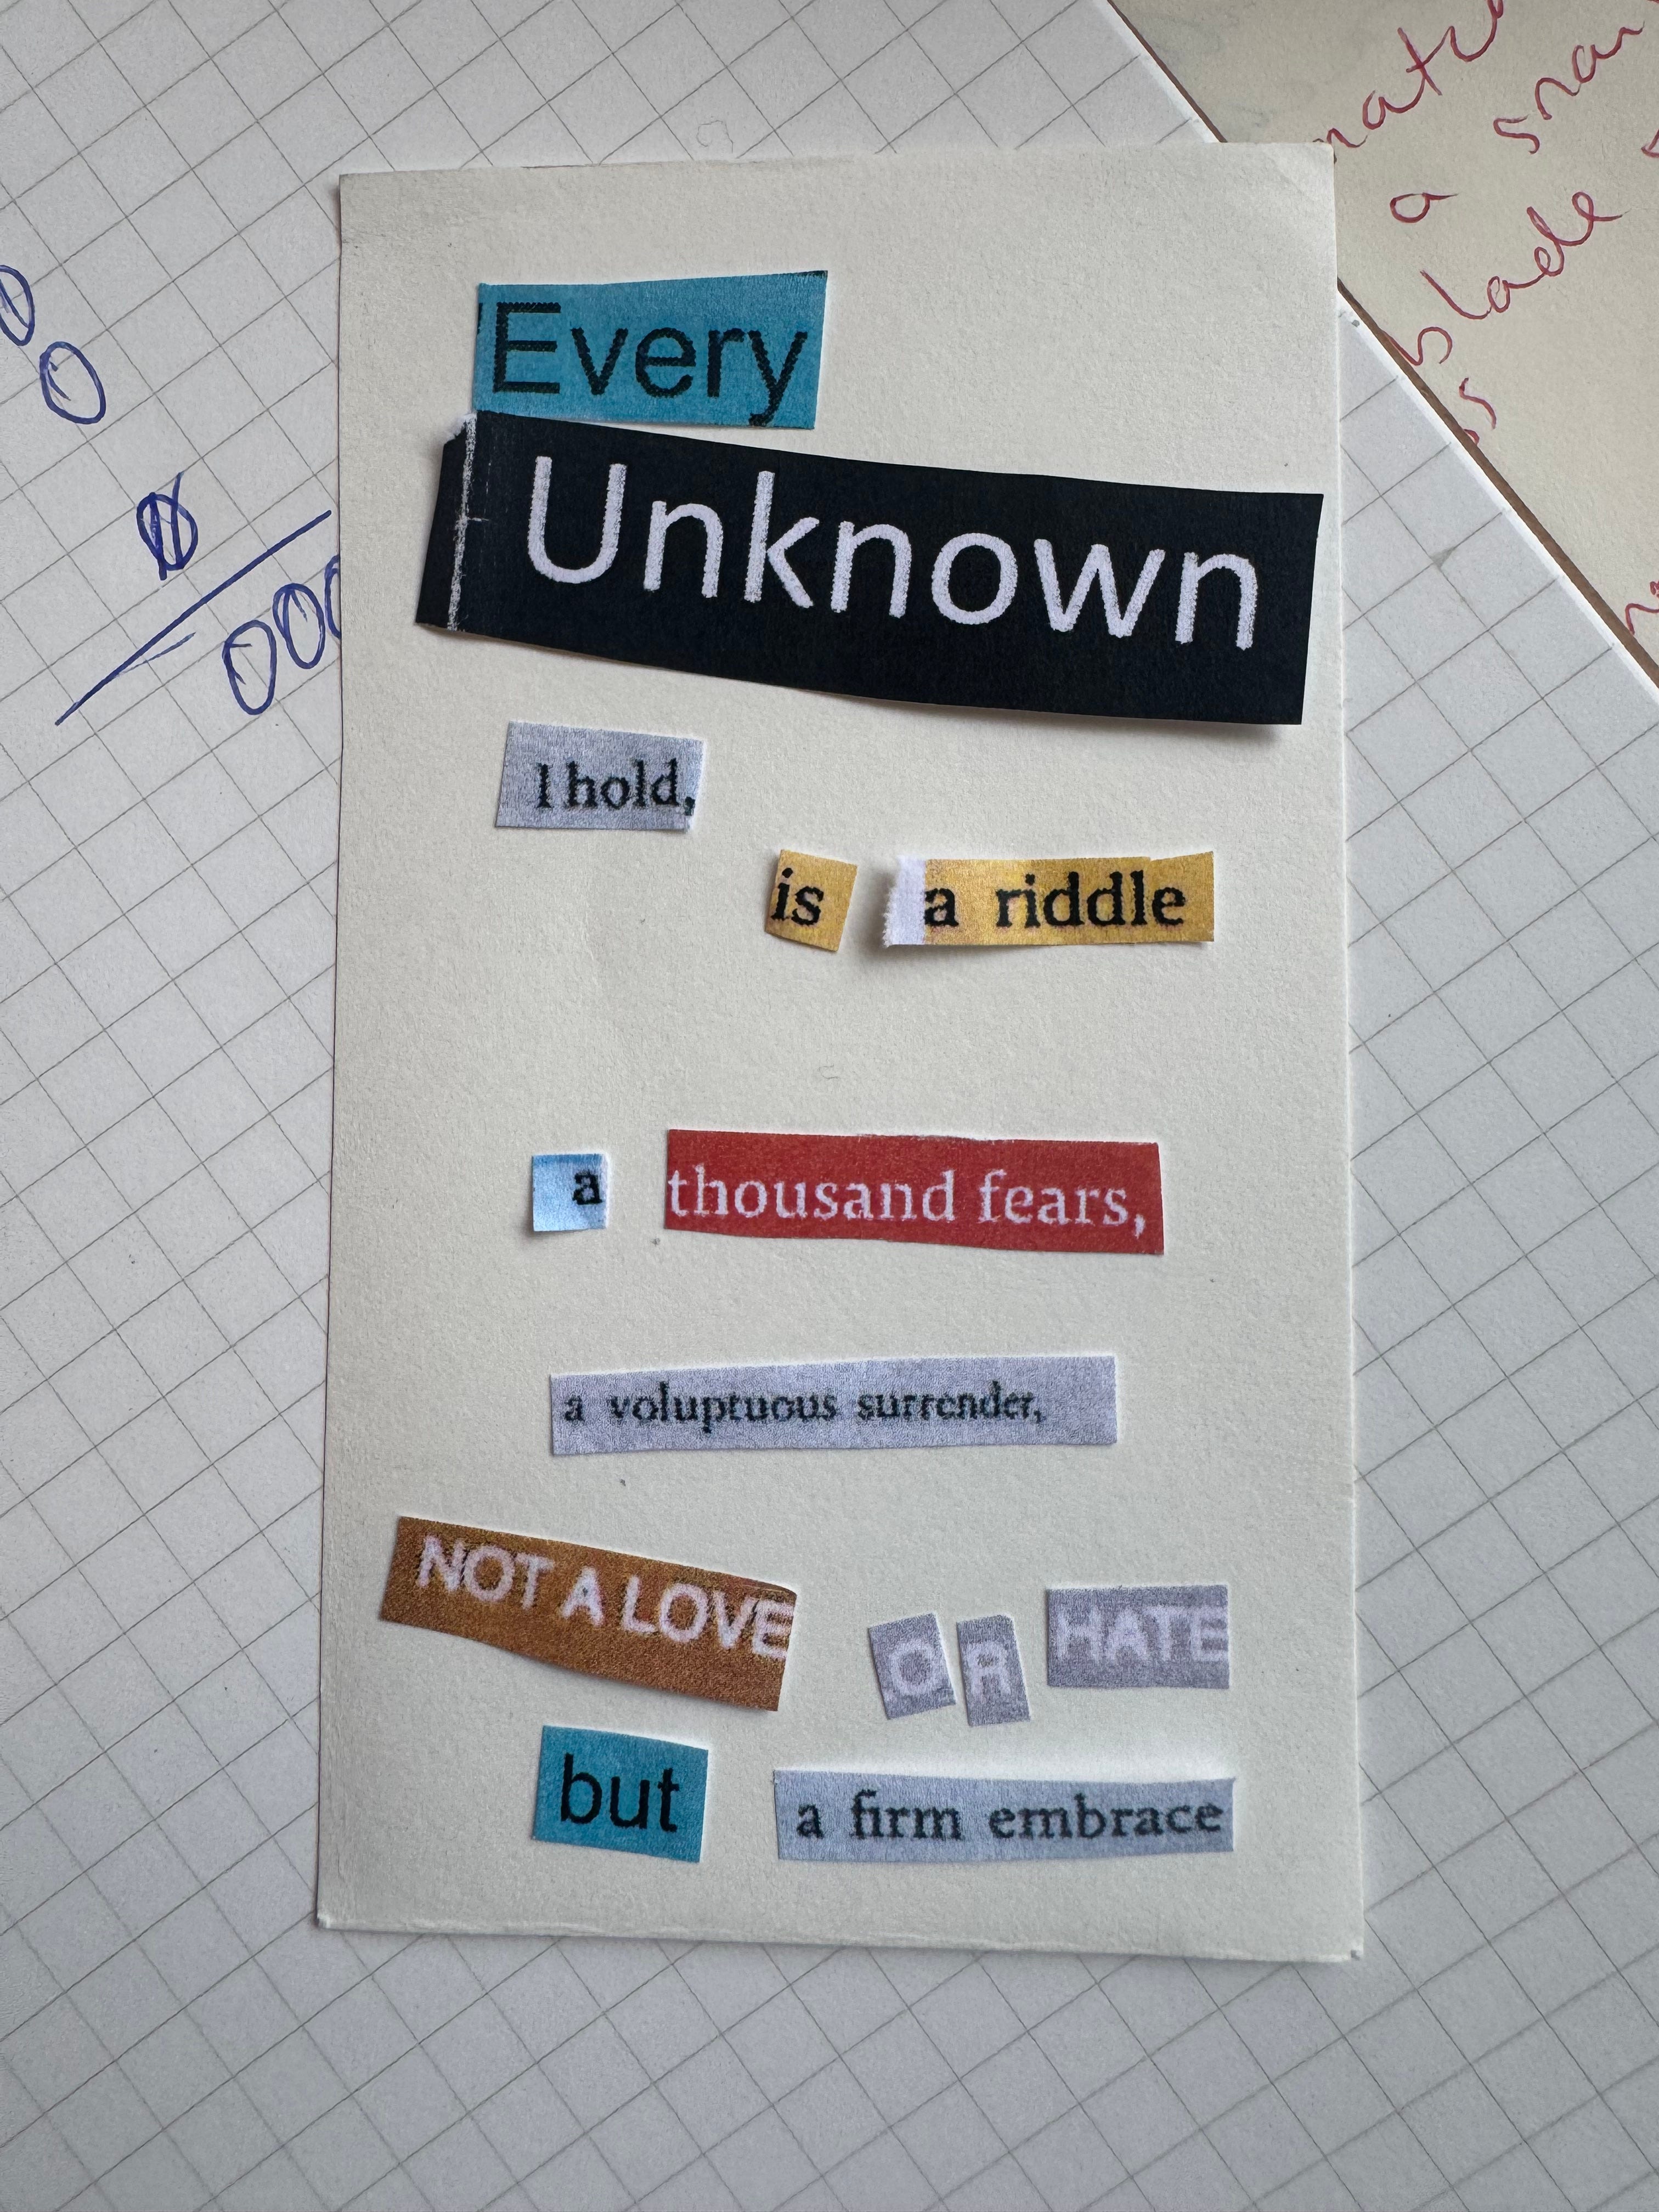 Every
Unknown
I hold,
is a riddle
a thousand fears,
a voluptuous surrender,
NOT A LOVE OR HATE
but a firm embrace
a
blade
0
0
000